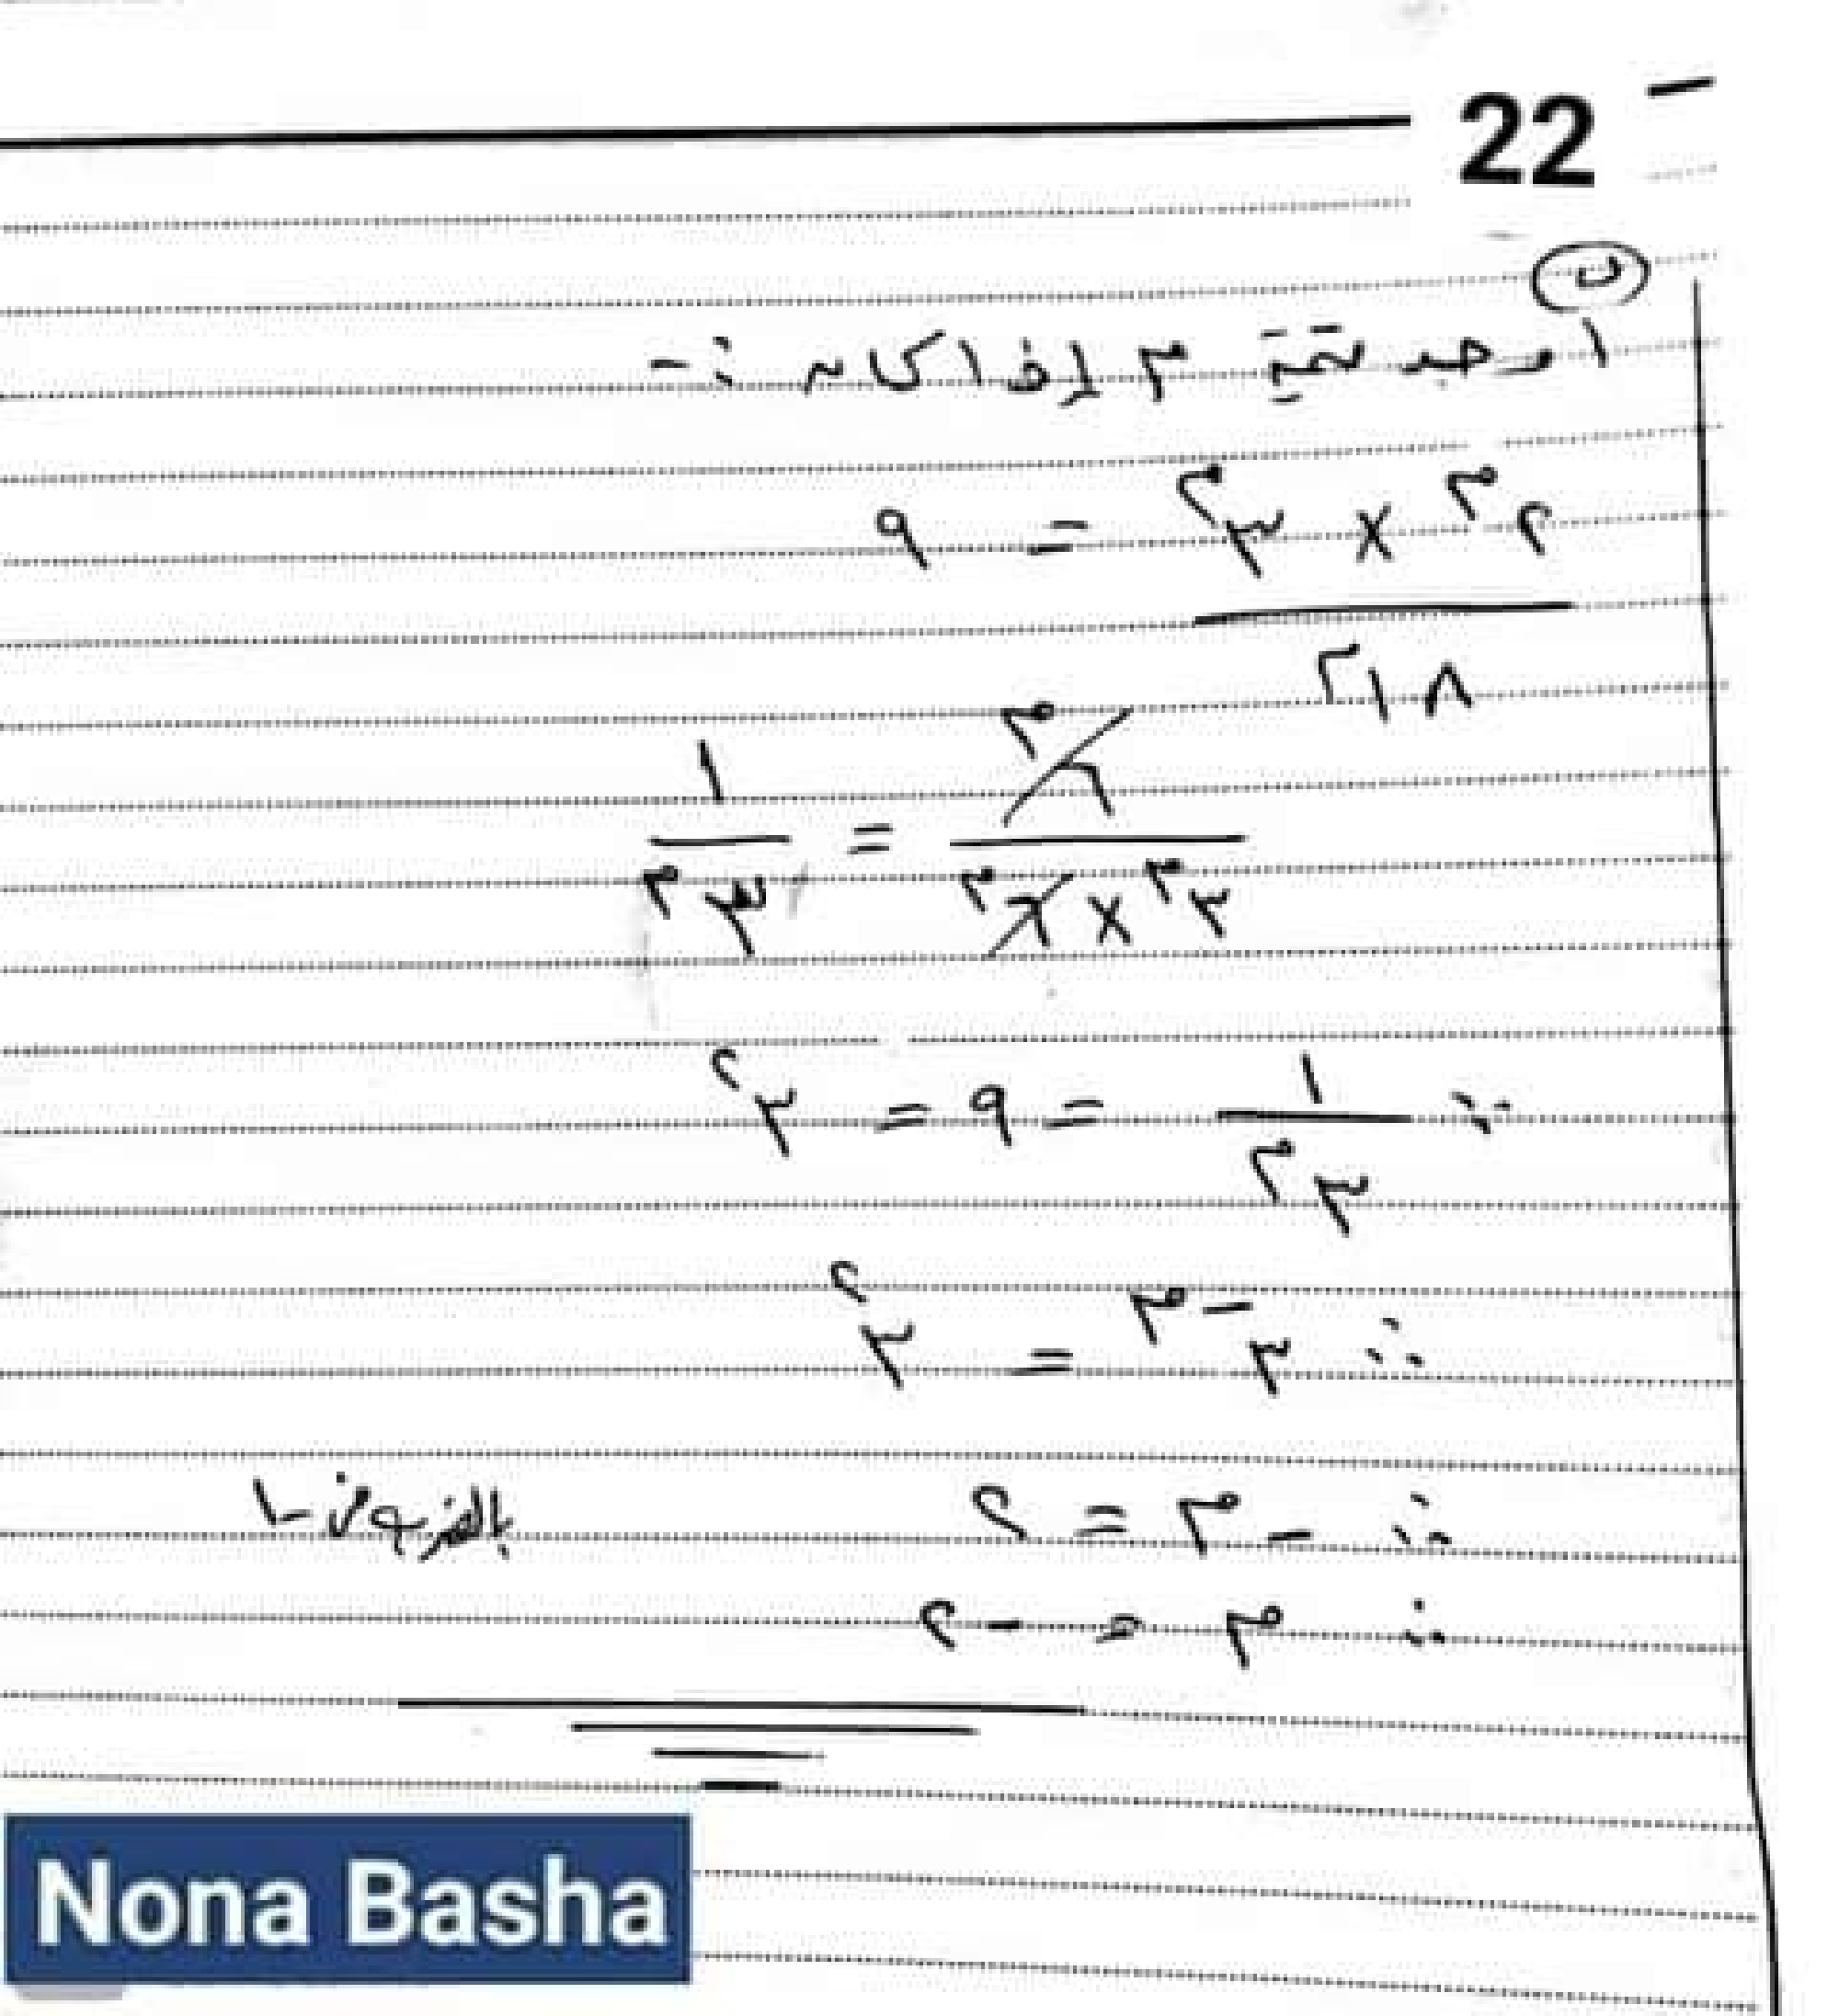 22 -
ب
اوجد قيمة م إذا كان :-
٢^م × ٣^م / ١٨^م = ٩
٦^م / (٣^م × ٦^م) = ١ / ٣^م
∵ ١ / ٣^م = ٩ = ٣^٢
∴ ٣^-م = ٣^٢
∴ - م = ٢ بالضرب × -١
∴ م = -٢
Nona Basha